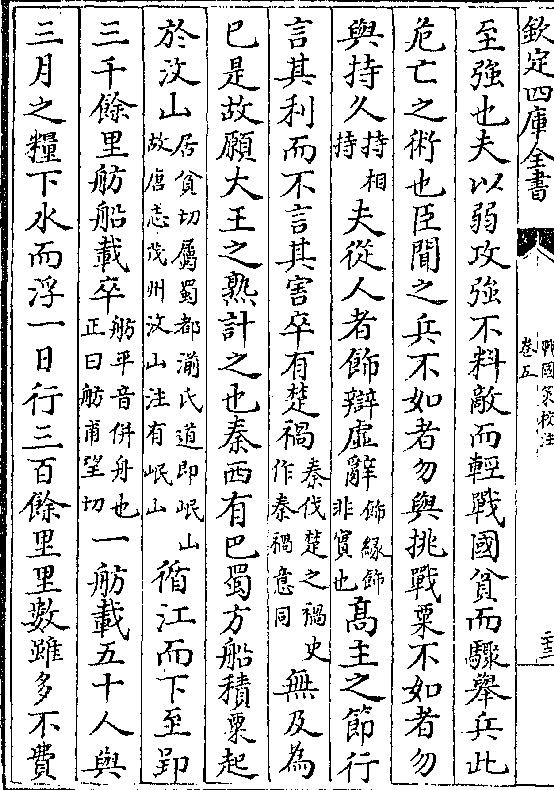 欽定四庫全書
戰國策校注
卷五
至強也夫以弱攻強不料敵而輕戰國貧而驟舉兵此
危亡之術也臣聞之兵不如者勿與挑戰粟不如者勿
與持久持相持夫從人者飾辯虛辭飾緣飾非實也高主之節行
言其利而不言其害卒有楚禍秦伐楚之禍史作秦禍意同無及為
已是故願大王之熟計之也秦西有巴蜀方船積粟起
於汶山居貧切屬蜀都湔氏道即岷山故唐志茂州汶山注有岷山循江而下至郢
三千餘里舫船載卒舫平音併舟也正曰舫甫望切一舫載五十人與
三月之糧下水而浮一日行三百餘里里數雖多不費